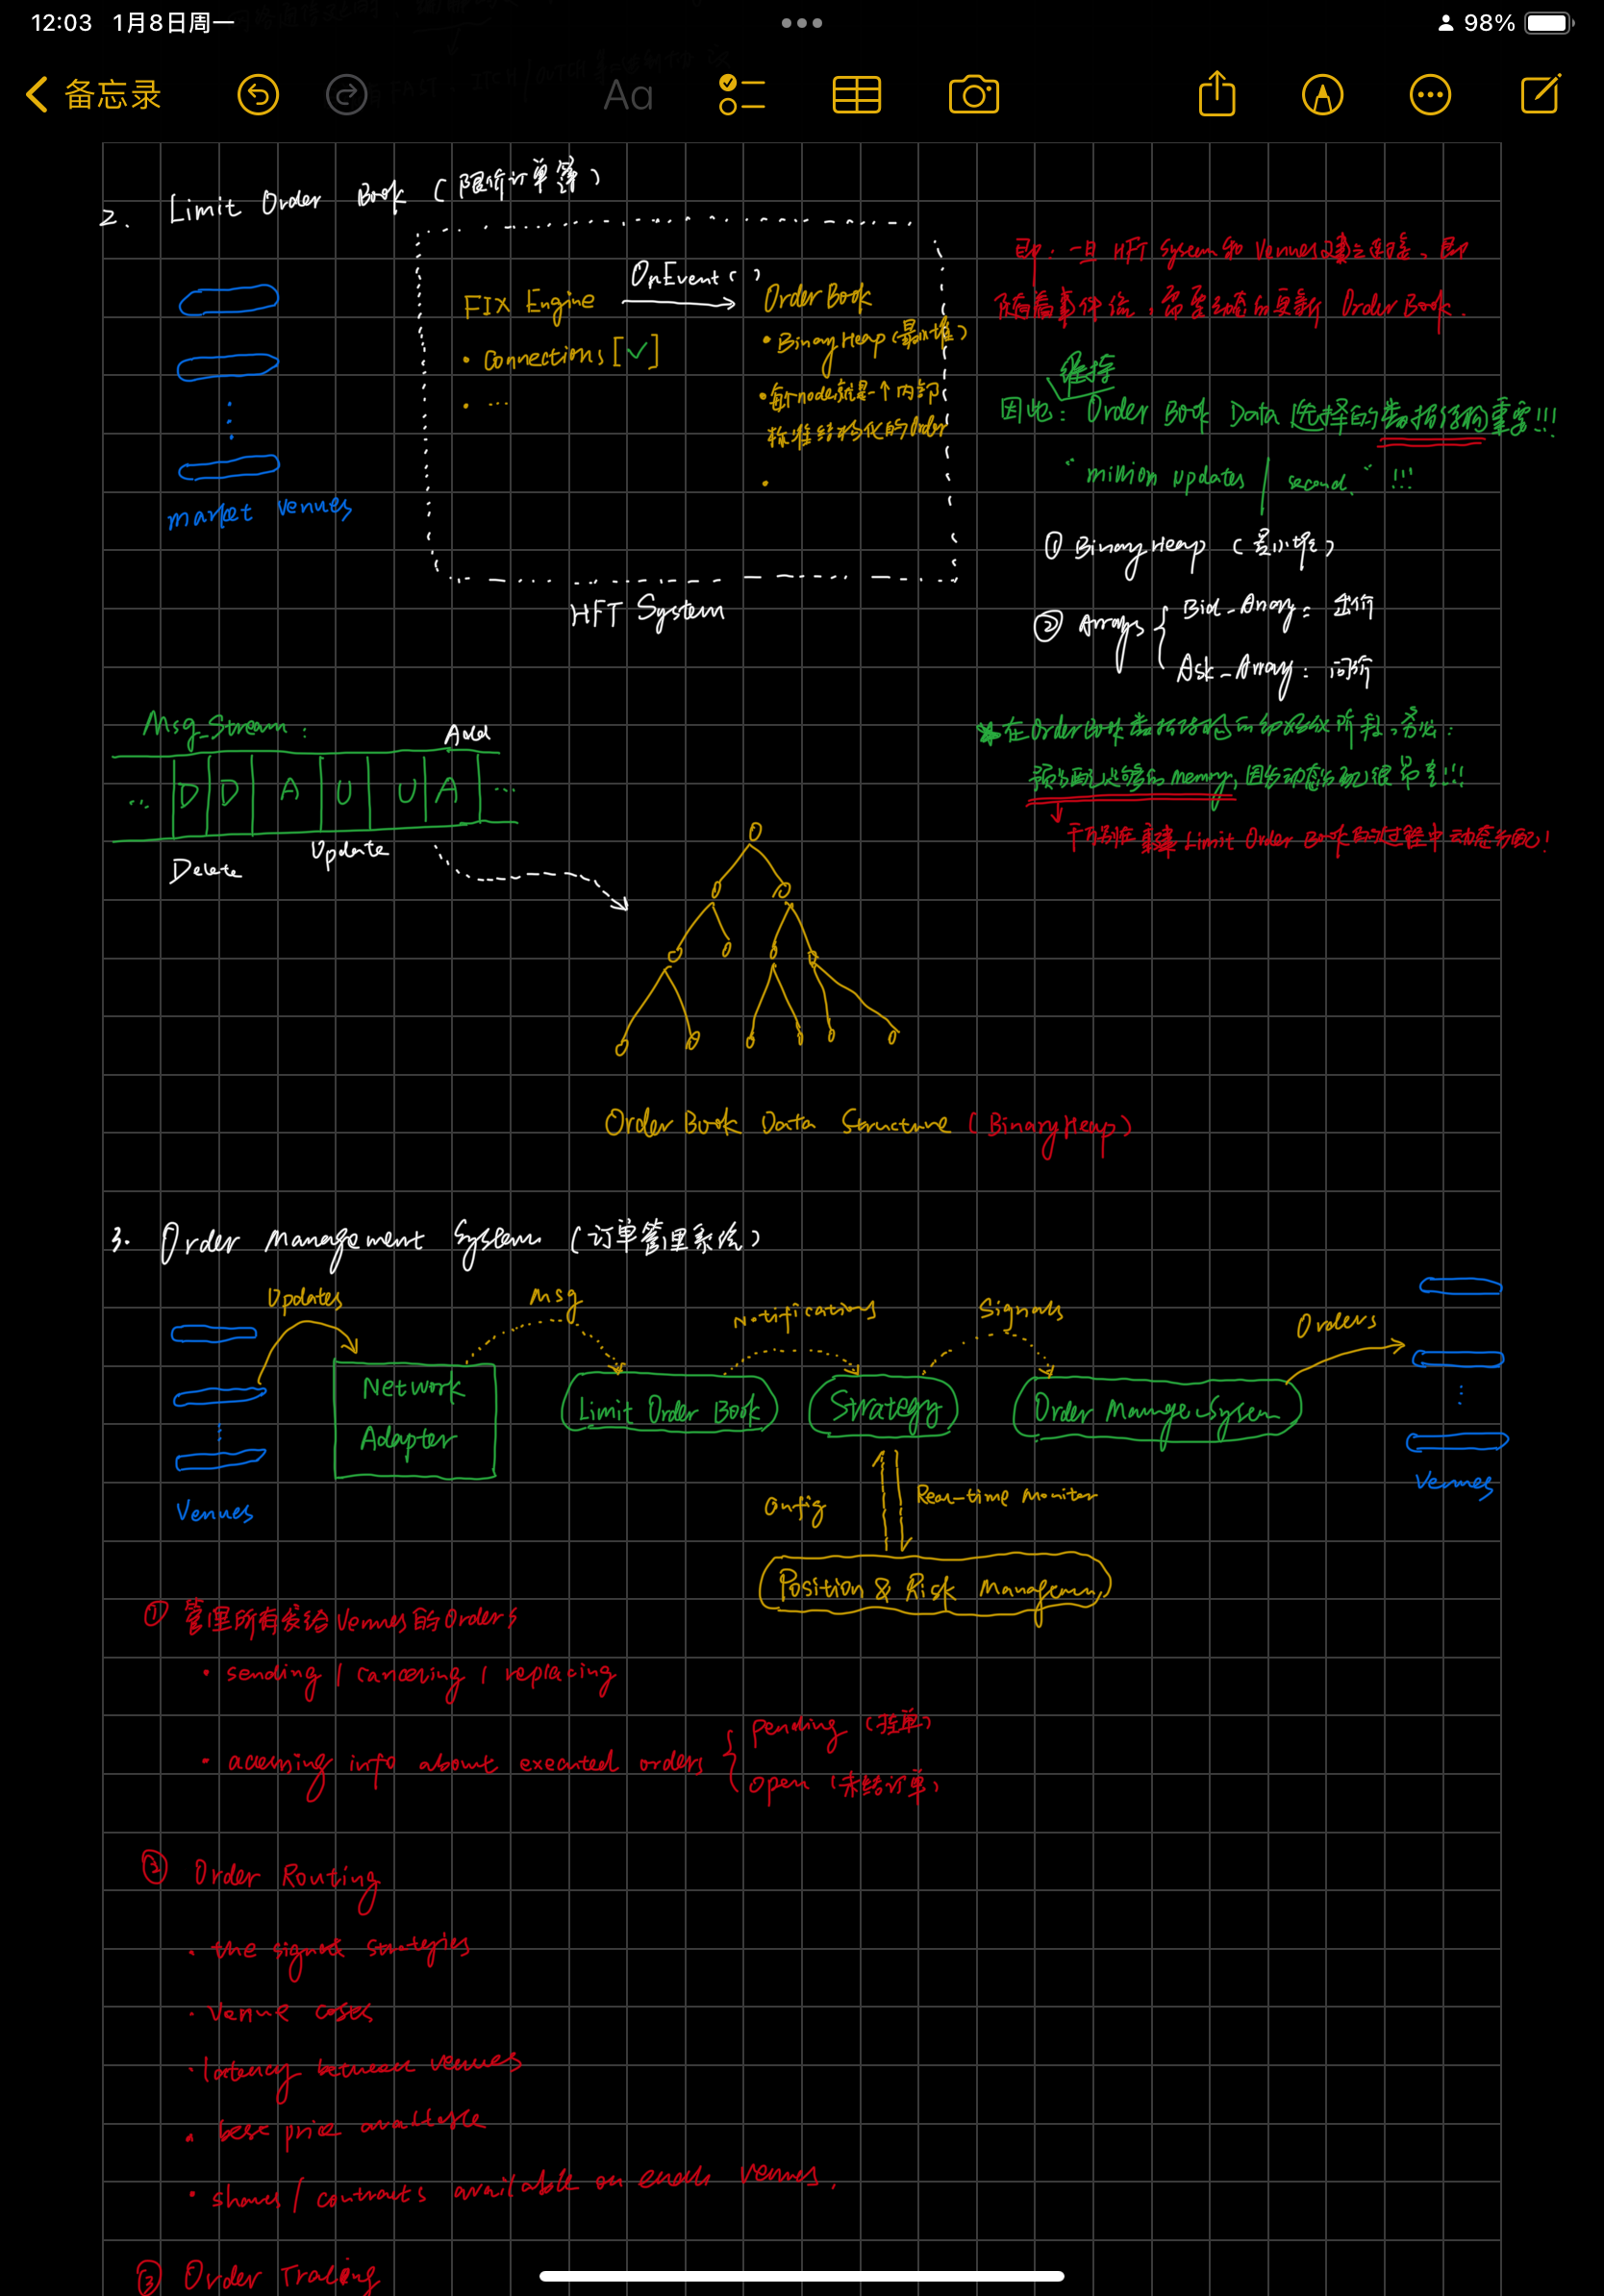 12:03 1月8日周一
98%
备忘录
Aa
2. Limit Order Book (限价订单簿)
OnEvent( )
FIX Engine
• Connections [✓]
• ...
Order Book
• Binary Heap (最小堆)
• 每个node就是一个内部
标准结构化的Order
•
market venues
HFT System
即: 一旦 HFT System 和 Venues 建立连接, 即
随着事件流, 需要动态的更新 Order Book.
维持
因此: Order Book Data 选择的数据结构重要!!!
"million updates / second." !!!
① Binary Heap (最小堆)
② Arrays { Bid_Array: 出价
Ask_Array: 问价
* 在OrderBook数据结构的初始化阶段, 务必:
预分配足够的 memory, 因为动态分配很昂贵!!!
千万别在重建 Limit Order Book的过程中动态分配!
Msg_Stream:
Add
... D D A U U A ...
Delete
Update
Order Book Data Structure (Binary Heap)
3. Order Management System (订单管理系统)
Updates
Msg
Notifications
Signals
Orders
Network
Adapter
Limit Order Book
Strategy
Order Manage-System
Venues
Venues
Config
Real-time Moniter
Position & Risk Managemen
① 管理所有发给Venues的Orders
• sending / canceling / replacing
• accessing info about executed orders { pending (挂单)
open (未结订单)
② Order Routing
• the signal strategies
• Venue costs
• latency between venues
• best price available
• shares / contracts available on each venues.
③ Order Tracing